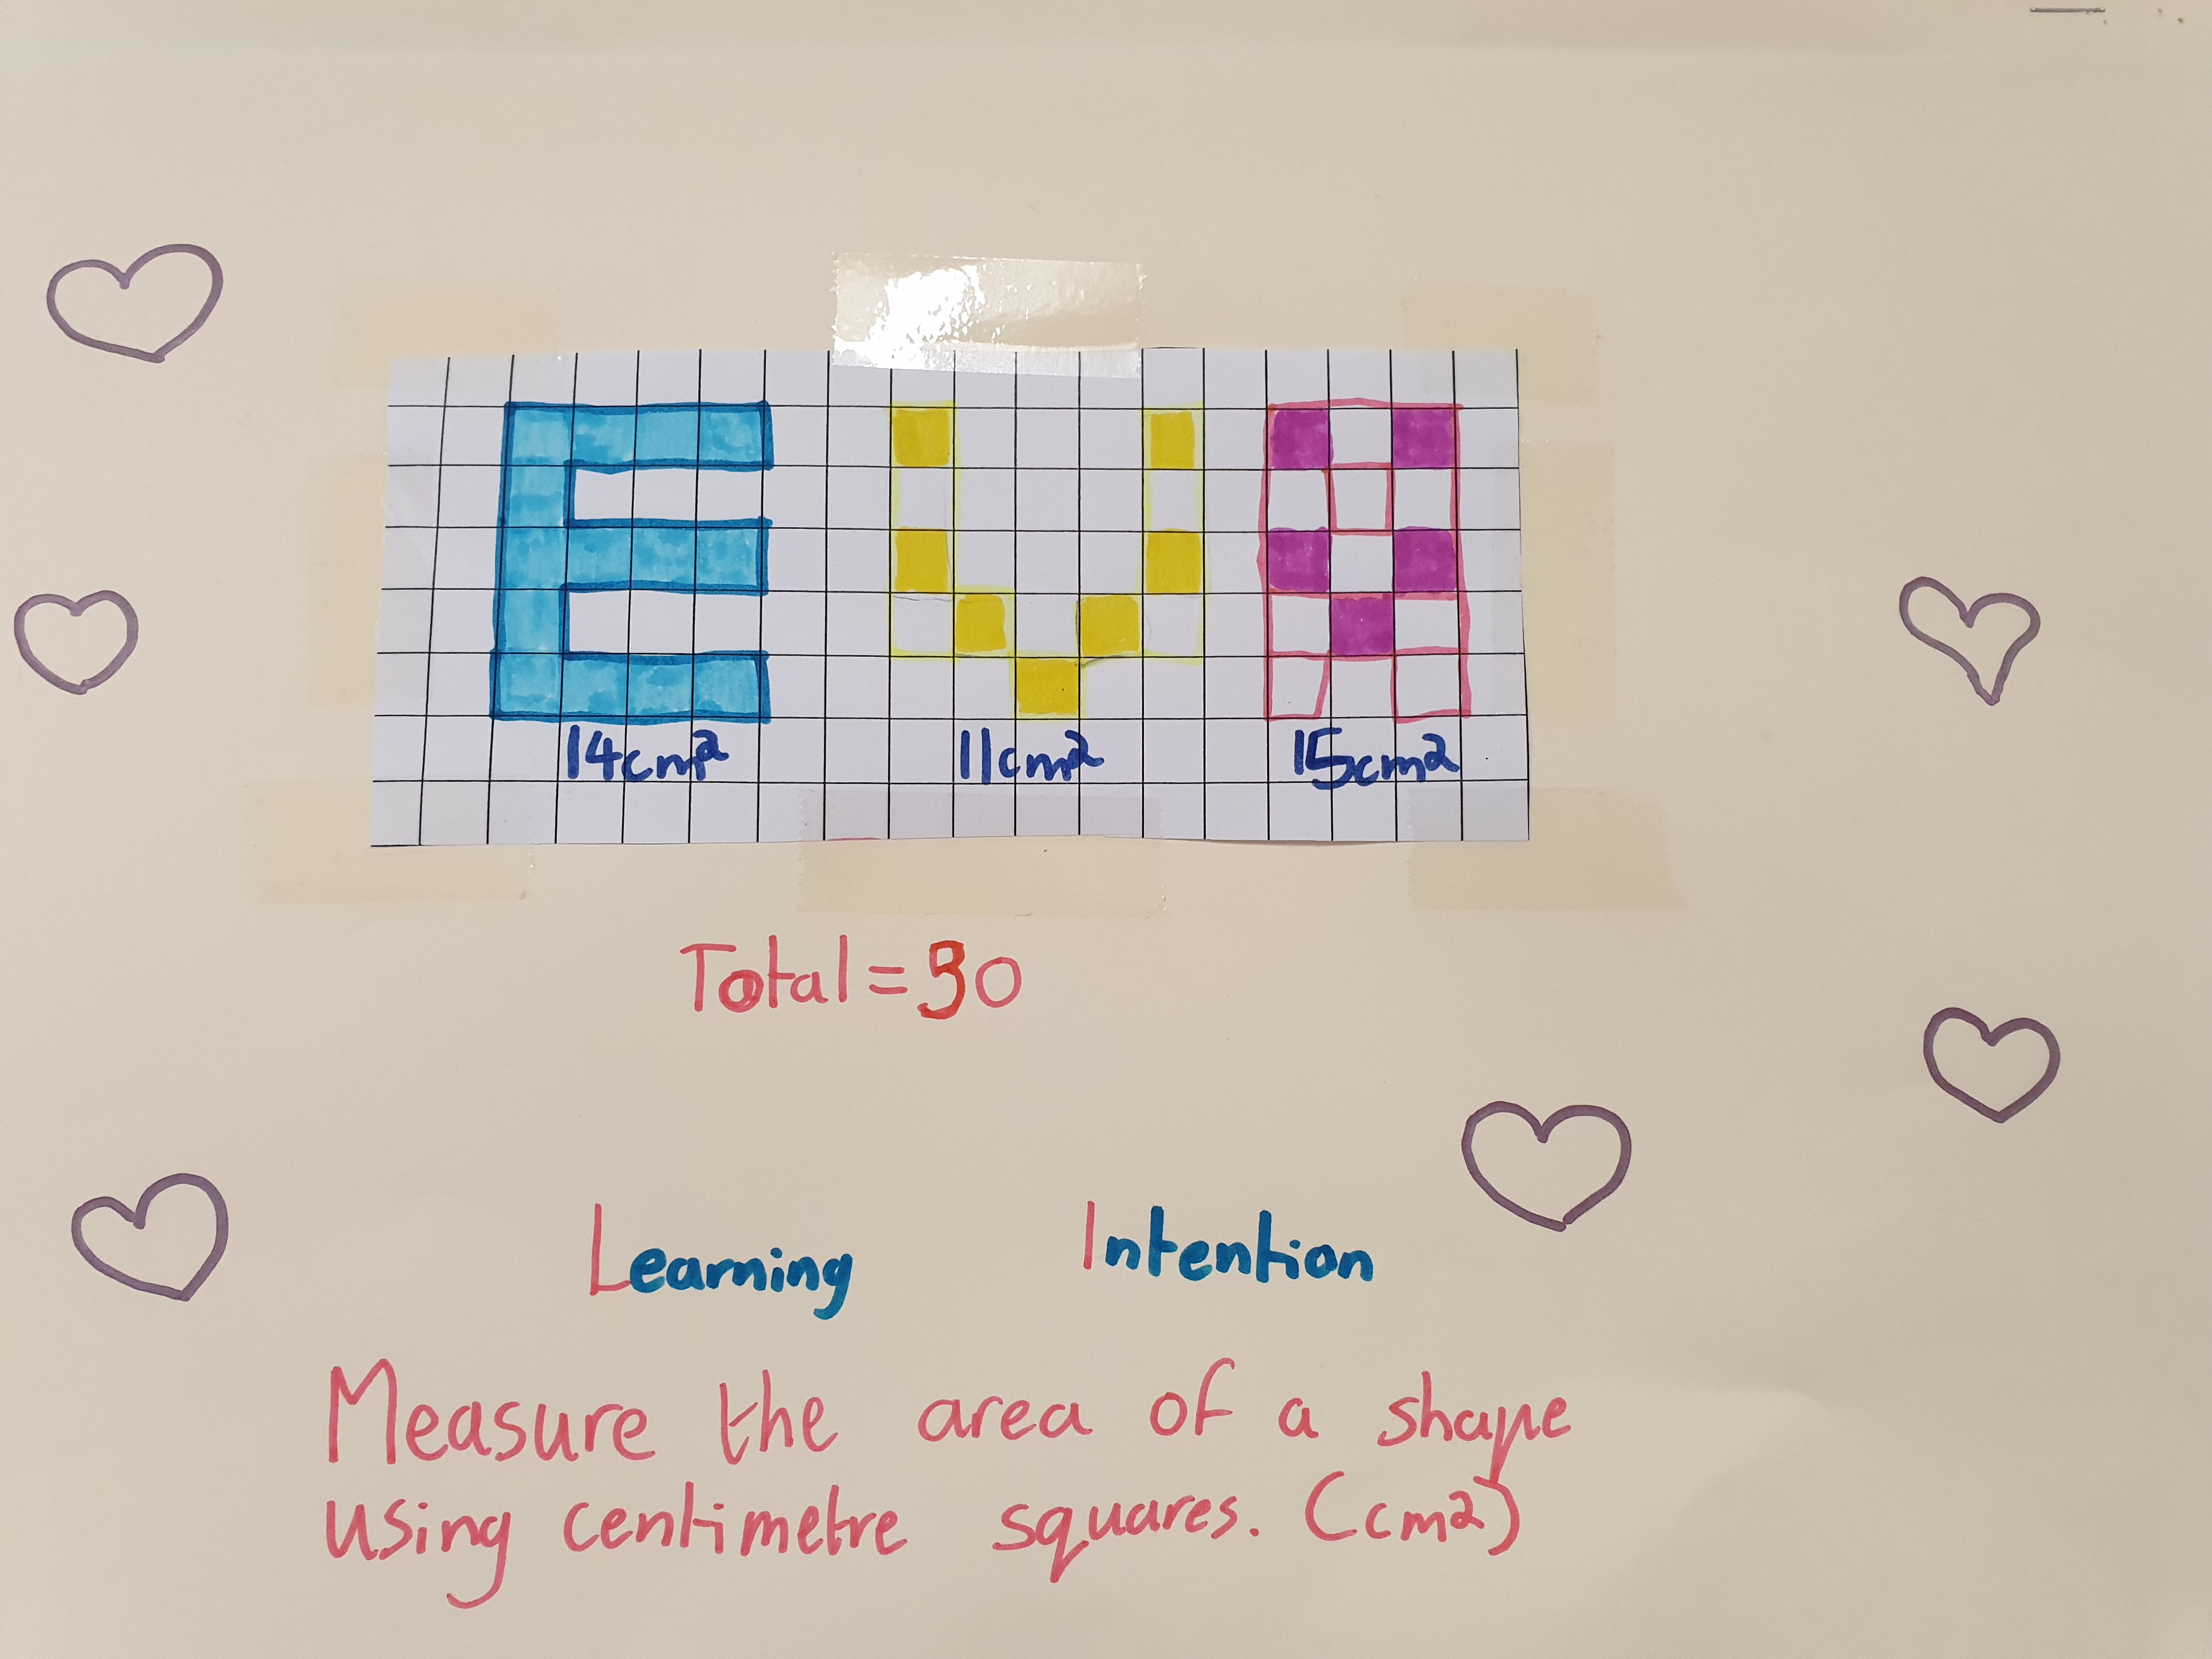 EVA
14cm²
11cm²
15cm2
Total = 30
Learning Intention
Measure the area of a shape
using centimetre squares. (cm2)